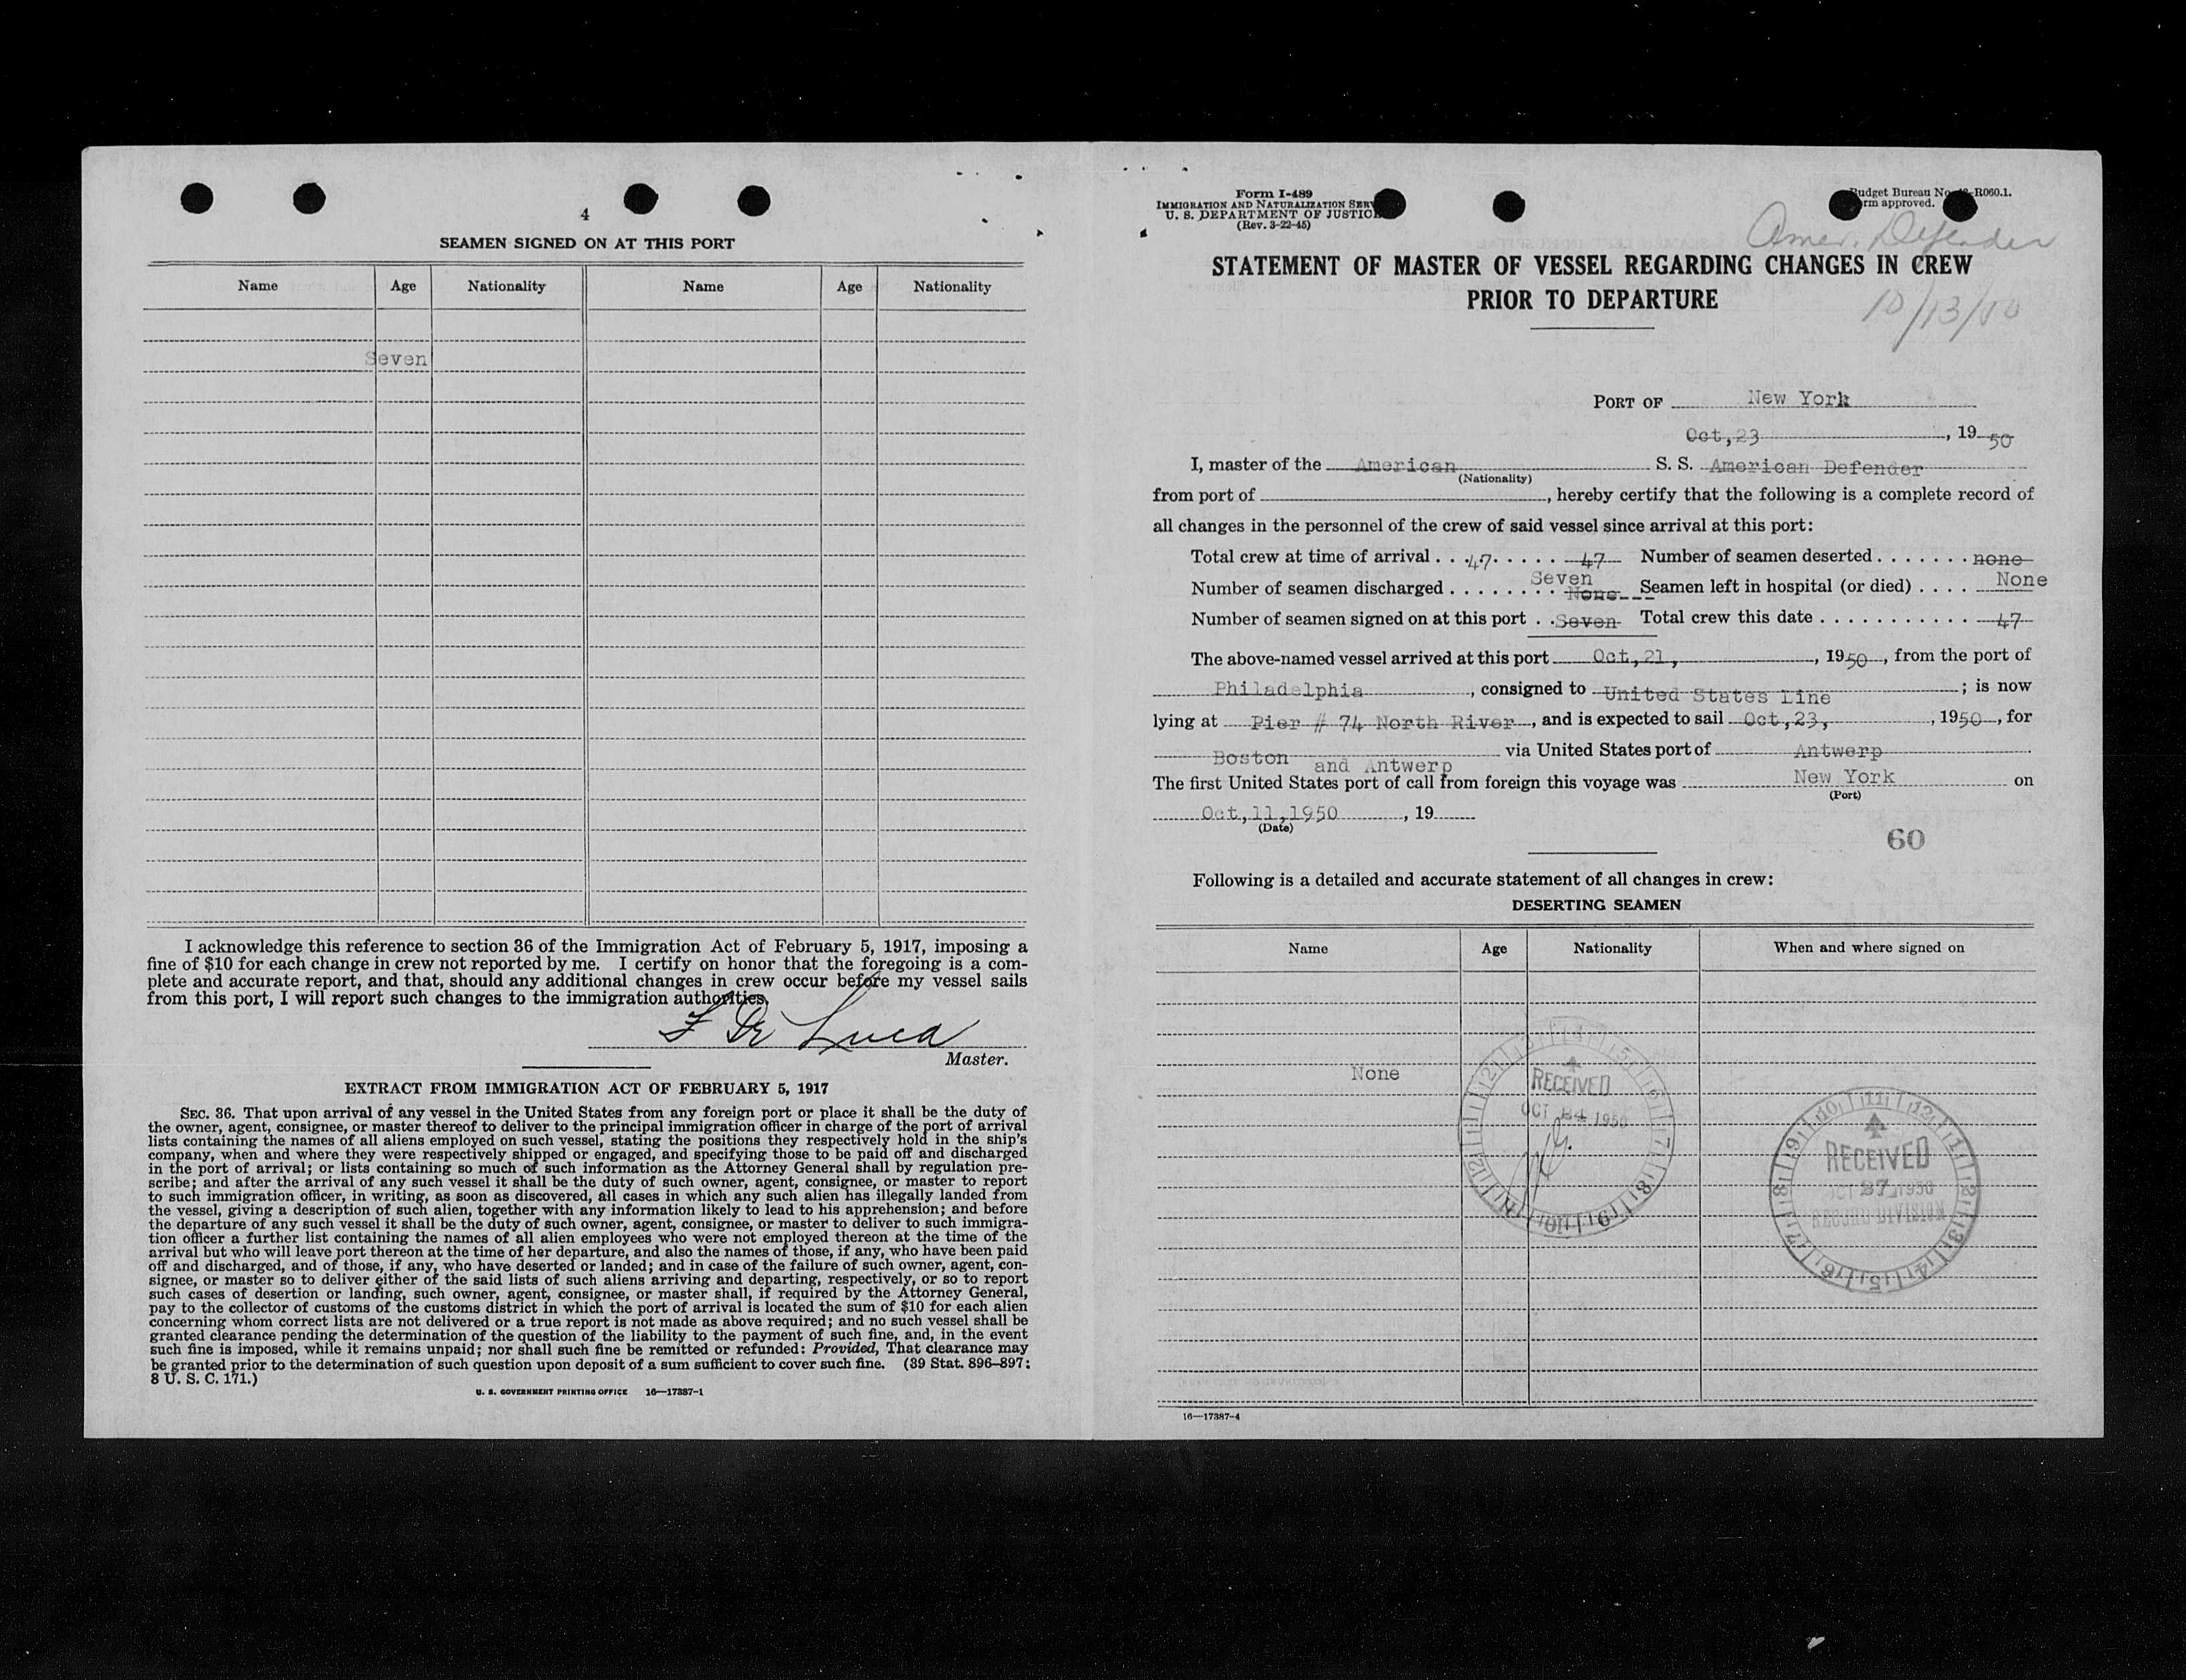 4
SEAMEN SIGNED ON AT THIS PORT
Name Age Nationality Name Age Nationality
Seven
I acknowledge this reference to section 36 of the Immigration Act of February 5, 1917, imposing a
fine of $10 for each change in crew not reported by me. I certify on honor that the foregoing is a com-
plete and accurate report, and that, should any additional changes in crew occur before my vessel sails
from this port, I will report such changes to the immigration authorities.
F De Luca
Master.
EXTRACT FROM IMMIGRATION ACT OF FEBRUARY 5, 1917
SEC. 36. That upon arrival of any vessel in the United States from any foreign port or place it shall be the duty of
the owner, agent, consignee, or master thereof to deliver to the principal immigration officer in charge of the port of arrival
lists containing the names of all aliens employed on such vessel, stating the positions they respectively hold in the ship's
company, when and where they were respectively shipped or engaged, and specifying those to be paid off and discharged
in the port of arrival; or lists containing so much of such information as the Attorney General shall by regulation pre-
scribe; and after the arrival of any such vessel it shall be the duty of such owner, agent, consignee, or master to report
to such immigration officer, in writing, as soon as discovered, all cases in which any such alien has illegally landed from
the vessel, giving a description of such alien, together with any information likely to lead to his apprehension; and before
the departure of any such vessel it shall be the duty of such owner, agent, consignee, or master to deliver to such immigra-
tion officer a further list containing the names of all alien employees who were not employed thereon at the time of the
arrival but who will leave port thereon at the time of her departure, and also the names of those, if any, who have been paid
off and discharged, and of those, if any, who have deserted or landed; and in case of the failure of such owner, agent, con-
signee, or master so to deliver either of the said lists of such aliens arriving and departing, respectively, or so to report
such cases of desertion or landing, such owner, agent, consignee, or master shall, if required by the Attorney General,
pay to the collector of customs of the customs district in which the port of arrival is located the sum of $10 for each alien
concerning whom correct lists are not delivered or a true report is not made as above required; and no such vessel shall be
granted clearance pending the determination of the question of the liability to the payment of such fine, and, in the event
such fine is imposed, while it remains unpaid; nor shall such fine be remitted or refunded: Provided, That clearance may
be granted prior to the determination of such question upon deposit of a sum sufficient to cover such fine. (39 Stat. 896–897;
8 U. S. C. 171.)
U. S. GOVERNMENT PRINTING OFFICE 16—17387-1
Form I-489
IMMIGRATION AND NATURALIZATION SERV
U. S. DEPARTMENT OF JUSTICE
(Rev. 3-22-45)
Budget Bureau No. R060.1.
rm approved.
Amer. Defender
STATEMENT OF MASTER OF VESSEL REGARDING CHANGES IN CREW
PRIOR TO DEPARTURE
10/13/50
PORT OF New York
Oct, 23, 1950
I, master of the American S. S. American Defender
(Nationality)
from port of , hereby certify that the following is a complete record of
all changes in the personnel of the crew of said vessel since arrival at this port:
Total crew at time of arrival . . .47. . . . . . 47 Number of seamen deserted . . . . . . . none
Number of seamen discharged . . . . . . . . Seven None Seamen left in hospital (or died) . . . . None
Number of seamen signed on at this port . . Seven Total crew this date . . . . . . . . . . . . 47
The above-named vessel arrived at this port Oct, 21, , 1950, from the port of
Philadelphia , consigned to United States Line ; is now
lying at Pier # 74 North River , and is expected to sail Oct, 23, , 1950, for
Boston and Antwerp via United States port of Antwerp
The first United States port of call from foreign this voyage was New York on
(Port)
Oct, 11, 1950 , 19
(Date)
60
Following is a detailed and accurate statement of all changes in crew:
DESERTING SEAMEN
Name Age Nationality When and where signed on
None
RECEIVED
OCT 24 1950
RECEIVED
OCT 27 1950
RECORD DIVISION
16—17387-4